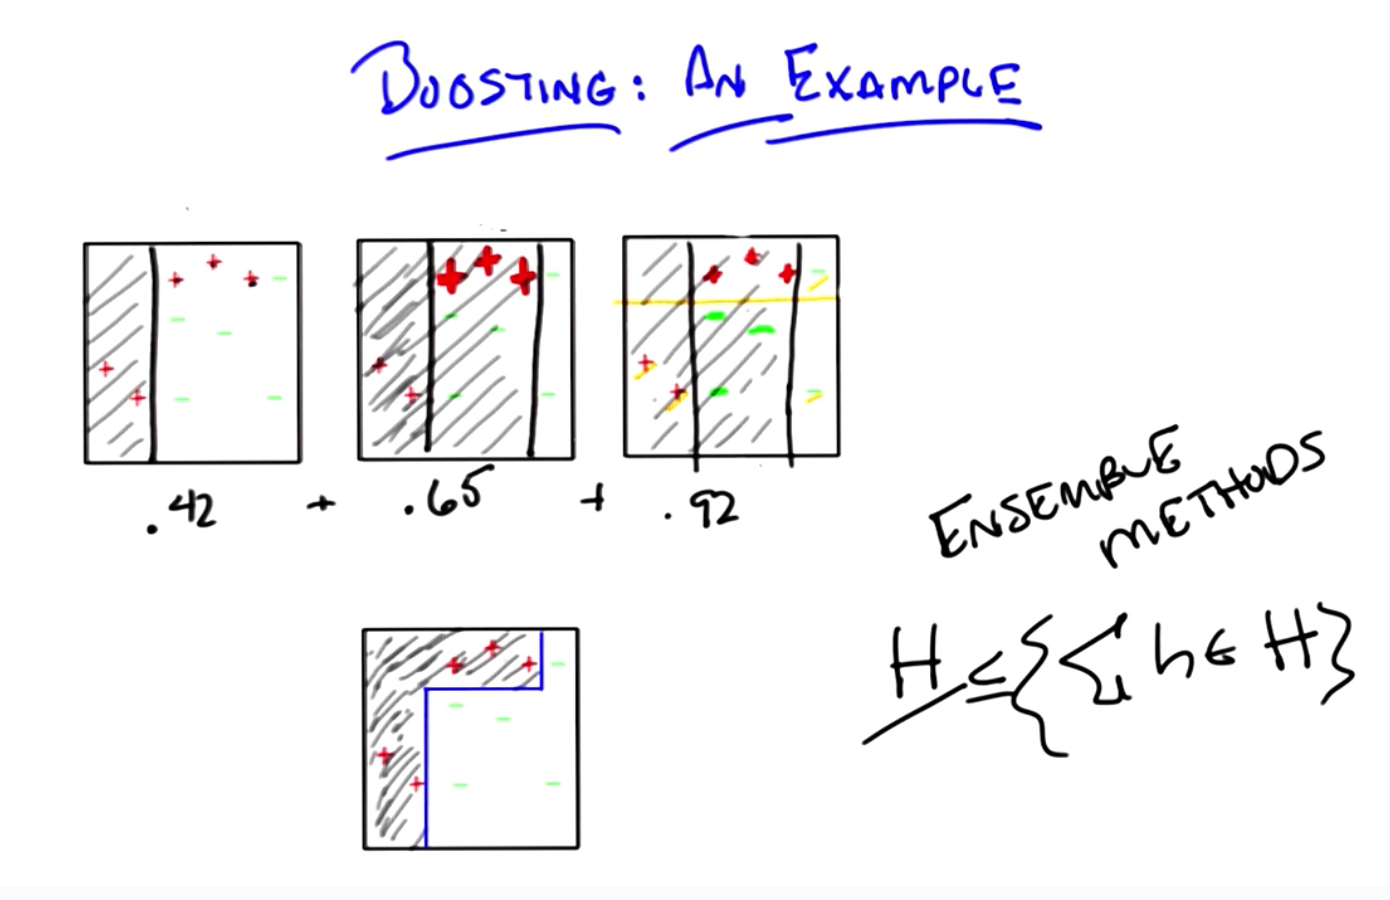 BOOSTING: AN EXAMPLE
.42 + .65 + .92
ENSEMBLE
METHODS
H ⊆ {Σ h ∈ H}